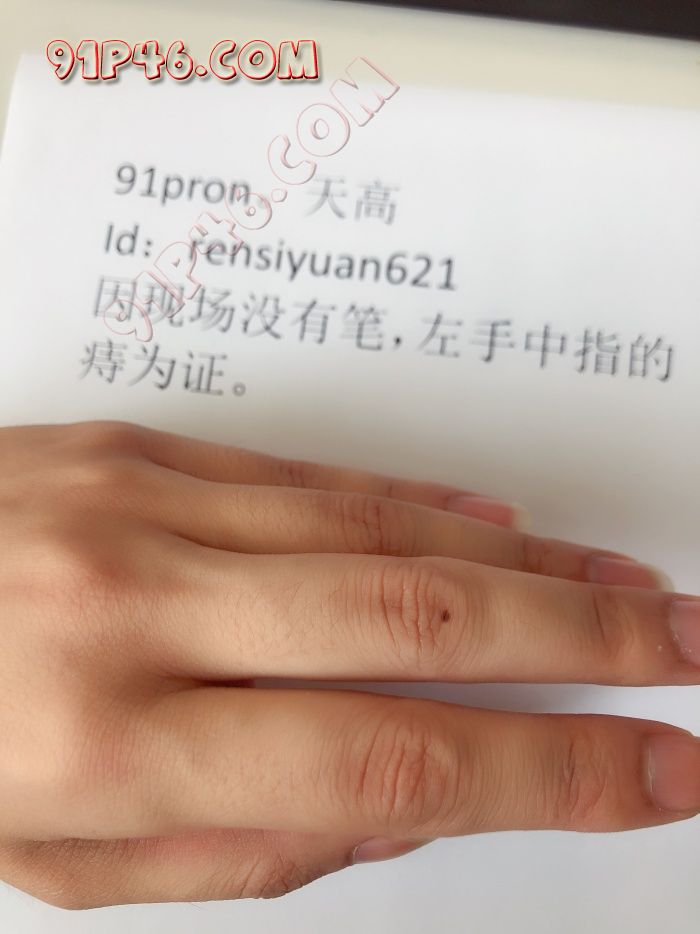 91P46.COM
91P46.COM
91pron。天高
Id：rensiyuan621
因现场没有笔，左手中指的
痔为证。